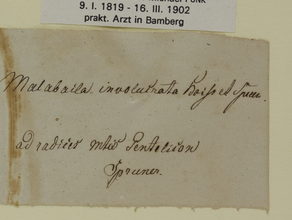 9. I. 1819 - 16. III. 1902
prakt. Arzt in Bamberg
Malabaila involucrata Boiss et Sprun.
ad radices mtis Pentelicon
Spruner.